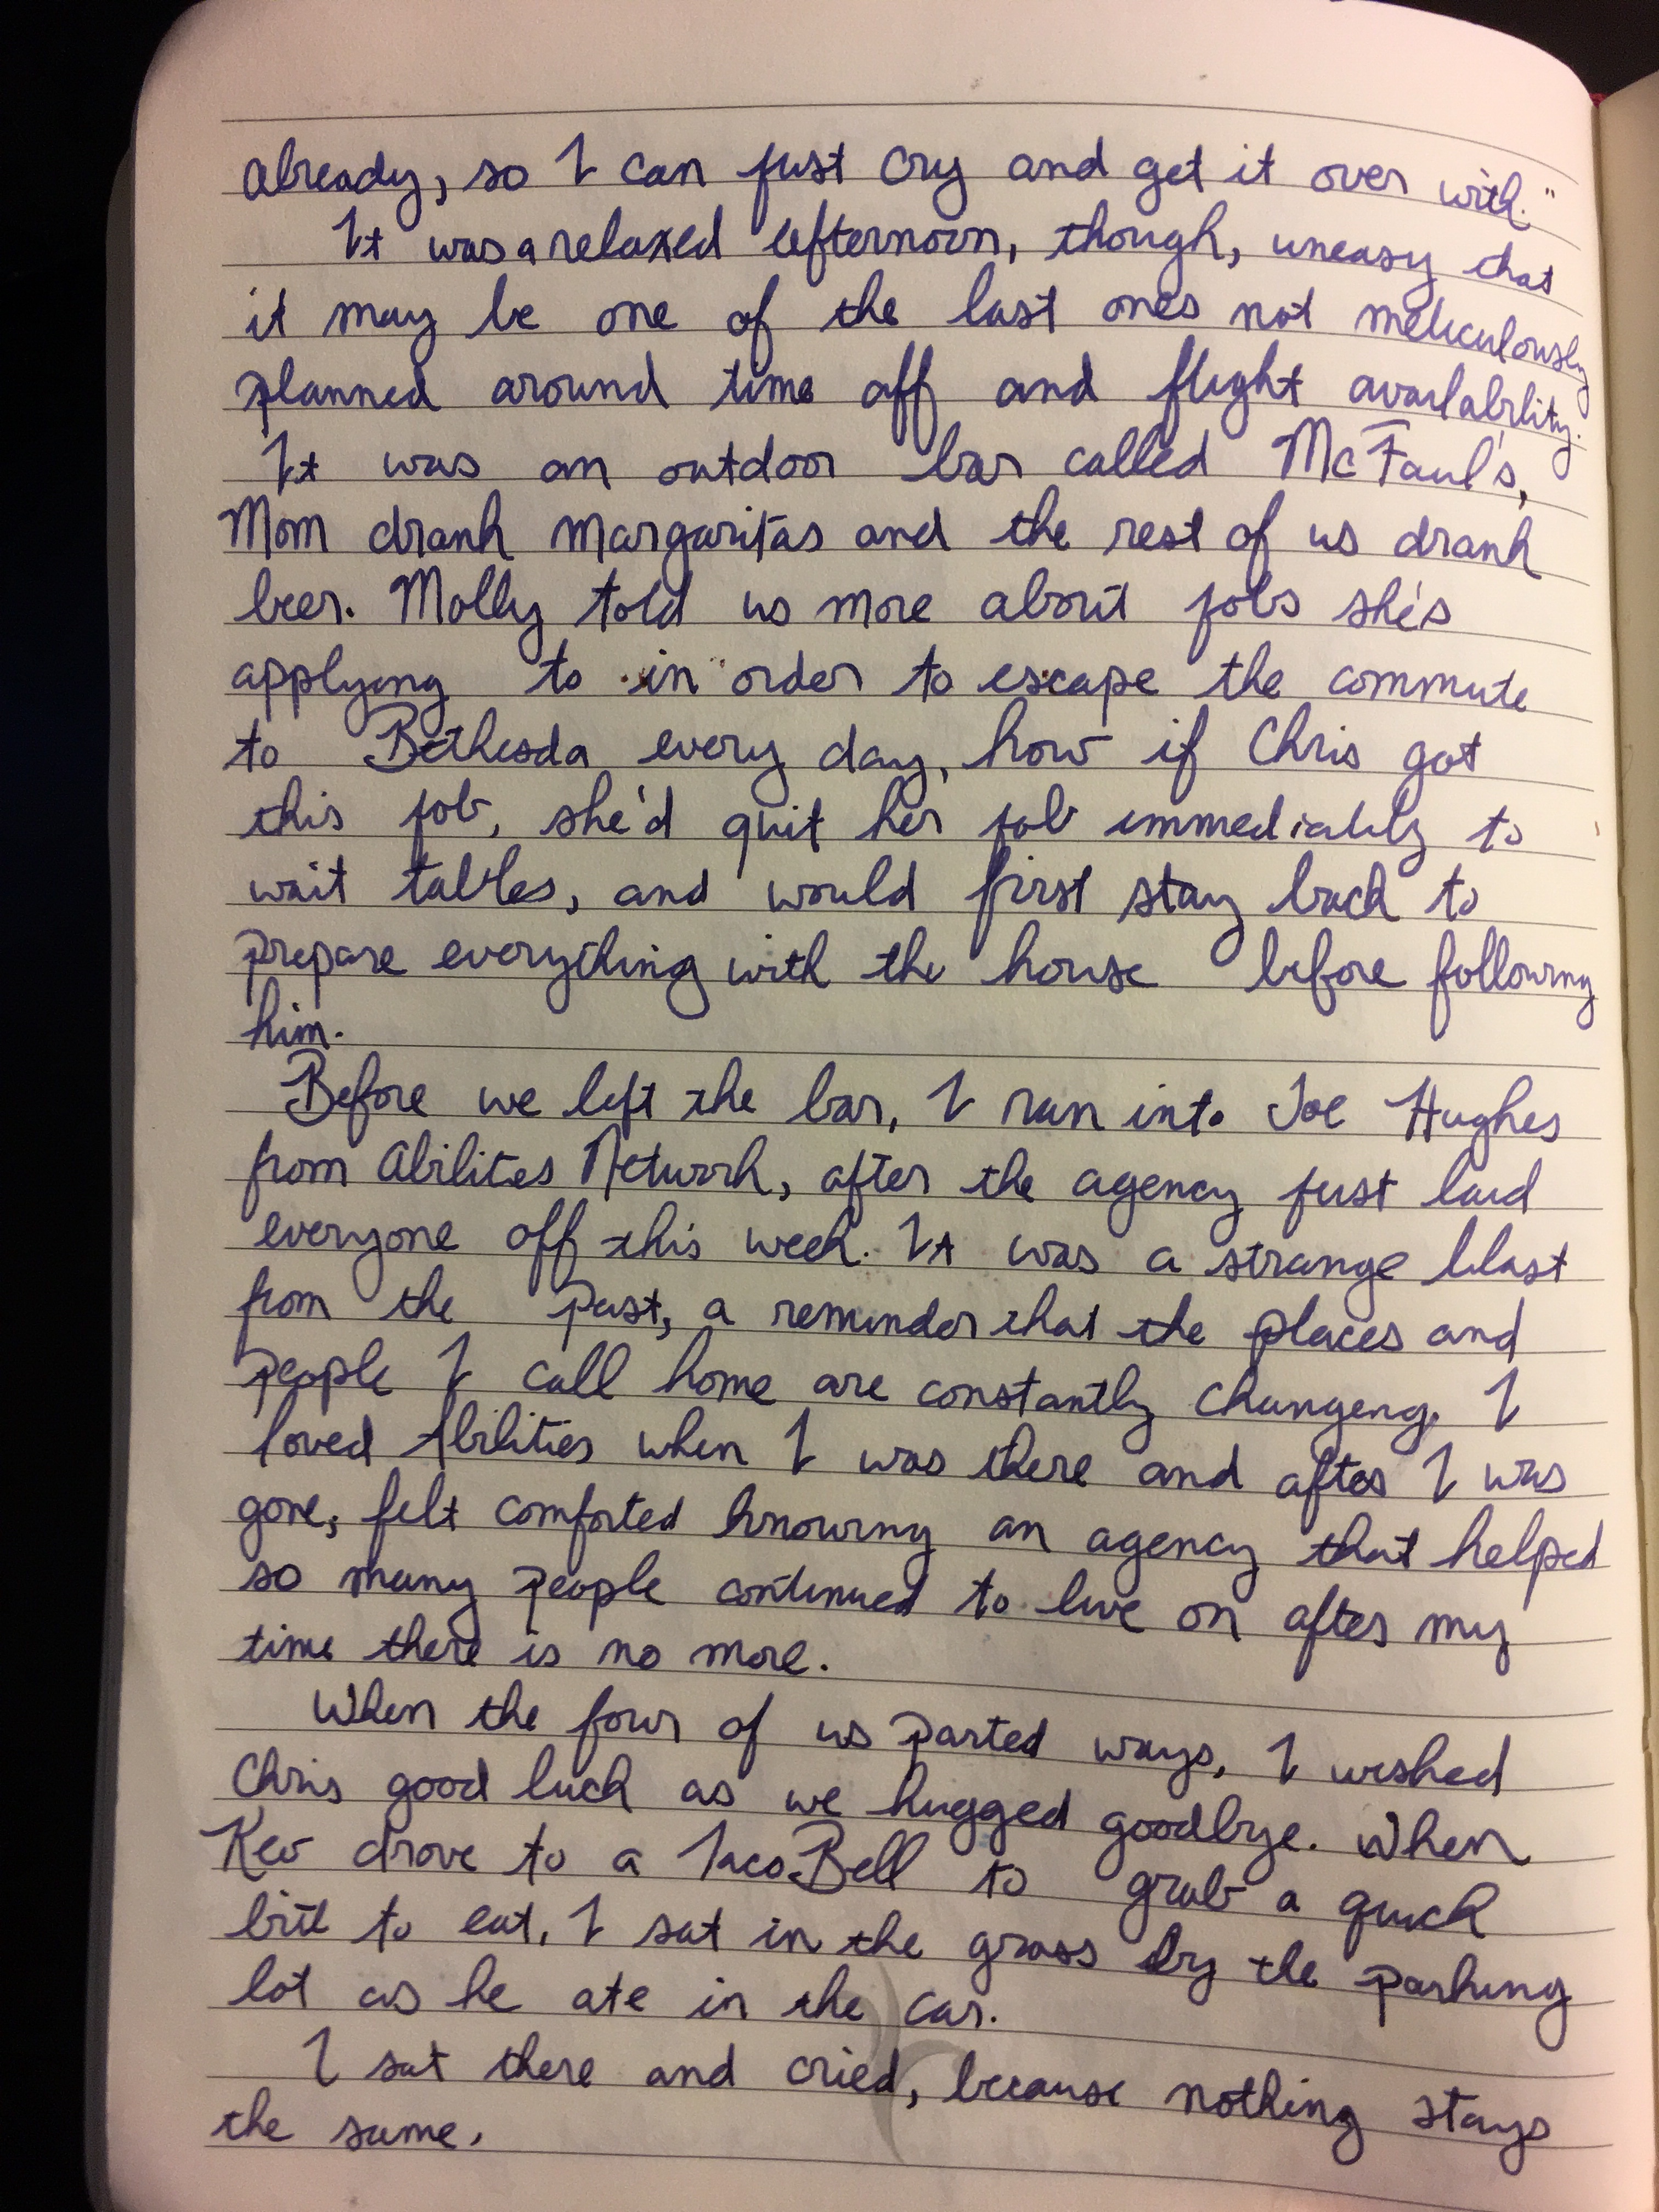 already, so I can just cry and get it over with."
It was a relaxed afternoon, though, uneasy that
it may be one of the last ones not meticulously
planned around time off and flight availability.
It was an outdoor bar called McFaul's,
Mom drank margaritas and the rest of us drank
beer. Molly told us more about jobs she's
applying to in order to escape the commute
to Bethesda every day, how if Chris got
this job, she'd quit her job immediately to
wait tables, and would first stay back to
prepare everything with the house before following
him.
Before we left the bar, I ran into Joe Hughes
from Abilites Network, after the agency just laid
everyone off this week. It was a strange blast
from the past, a reminder that the places and
people I call home are constantly changing. I
loved Abilities when I was there and after I was
gone, felt comforted knowing an agency that helped
so many people continued to live on after my
time there is no more.
When the four of us parted ways, I wished
Chris good luck as we hugged goodbye. When
Kev drove to a Taco Bell to grab a quick
bite to eat, I sat in the grass by the parking
lot as he ate in the car.
I sat there and cried, because nothing stays
the same.